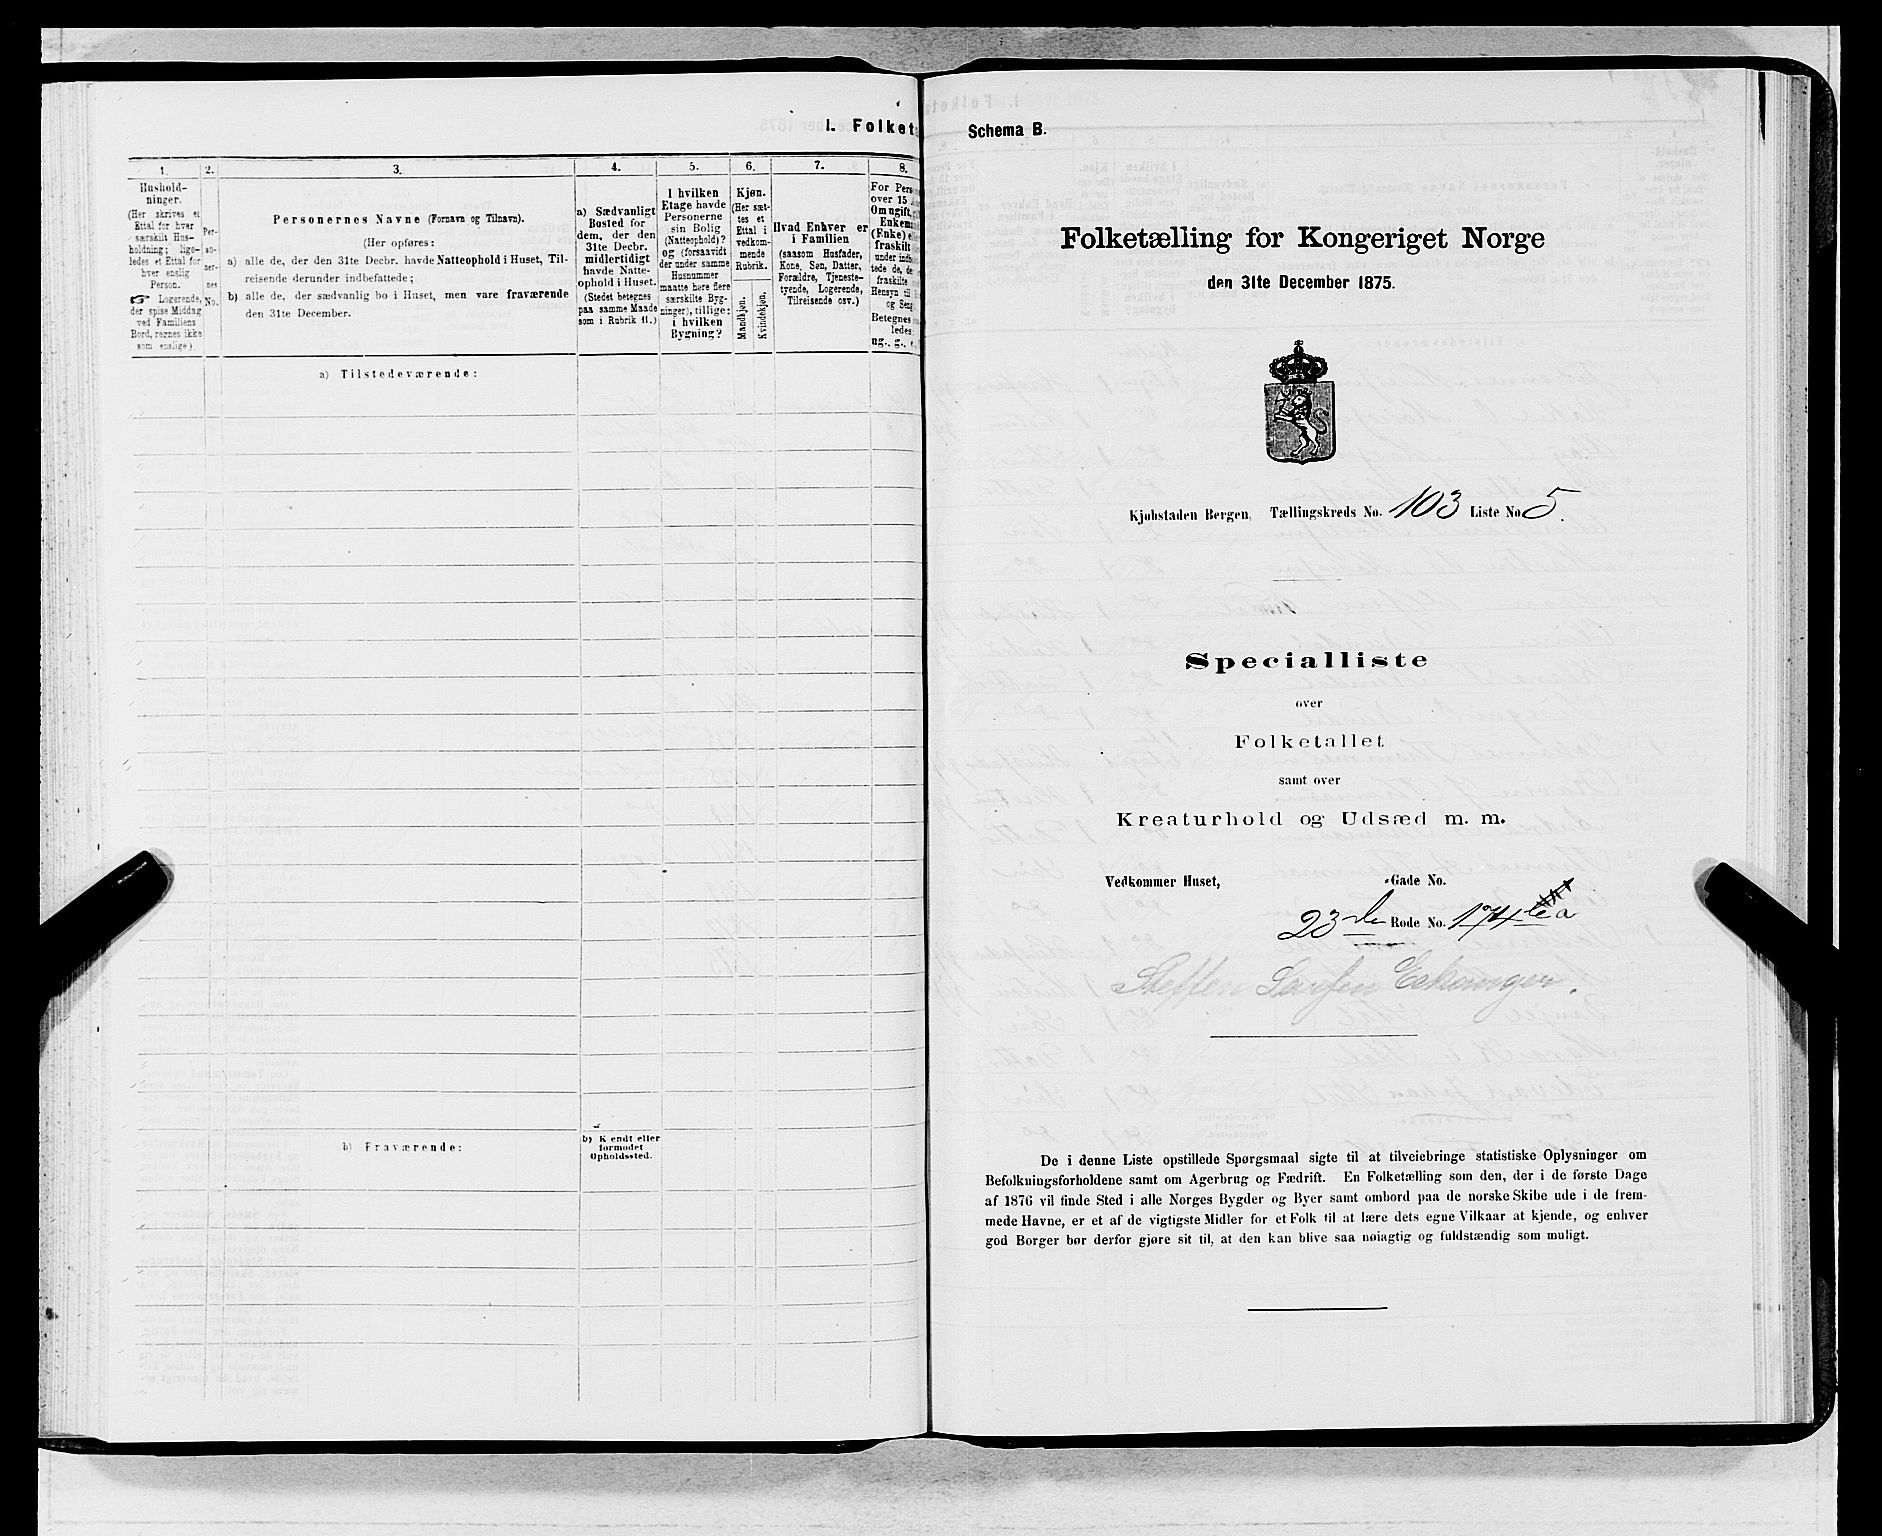 I. Folket
1.
Hushold-
ninger.
(Her skrives et
Ettal for hver
særskilt Hus-
holdning; lige-
ledes et Ettal for
hver enslig
Person.
☞ Logerende,
der spise Middag
ved Familiens
Bord, regnes ikke
som enslige).
2.
Per-
so-
ner-
nes
No.
3.
Personernes Navne (Fornavn og Tilnavn).
(Her opføres:
a) alle de, der den 31te Decbr. havde Natteophold i Huset, Til-
reisende derunder indbefattede;
b) alle de, der sædvanlig bo i Huset, men vare fraværende
den 31te December.
4.
a) Sædvanligt
Bosted for
dem, der den
31te Decbr.
midlertidigt
havde Natte-
ophold i Huset.
(Stedet betegnes
paa samme Maade
som i Rubrik 11.)
5.
I hvilken
Etage havde
Personerne
sin Bolig
(Natteophold)?
og (forsaavidt
der under samme
Husnummer
maatte høre flere
særskilte Byg-
ninger), tillige:
i hvilken
Bygning?
6.
Kjøn.
(Her sæt-
tes et
Ettal i
vedkom-
mende
Rubrik.
Mandkjøn.
Kvindekjøn.
7.
Hvad Enhver er
i Familien
(saasom Husfader,
Kone, Søn, Datter,
Forældre, Tjeneste-
tyende, Logerende,
Tilreisende osv.)
8.
For Pers
over 15
Om ugift,
Enkem
(Enke)
fraskilt
under indb
tede de, de
fraskilte
Hensyn til
og Seng
Betegnes
ledes
ug., g., e.,
a) Tilstedeværende:
b) Fraværende:
b) Kendt eller
formodet
Opholdssted.
Schema B.
Folketælling for Kongeriget Norge
den 31te December 1875.
Kjøbstaden Bergen, Tællingskreds No. 103 Liste No 5.
Specialliste
over
Folketallet
samt over
Kreaturhold og Udsæd m. m.
Vedkommer Huset, -Gade No.
23de Rode No. 174 a
Steffen Larsen Eskanger.
De i denne Liste opstillede Spørgsmaal sigte til at tilveiebringe statistiske Oplysninger om
Befolkningsforholdene samt om Agerbrug og Fædrift. En Folketælling som den, der i de første Dage
af 1876 vil finde Sted i alle Norges Bygder og Byer samt ombord paa de norske Skibe ude i de frem-
mede Havne, er et af de vigtigste Midler for et Folk til at lære dets egne Vilkaar at kjende, og enhver
god Borger bør derfor gjøre sit til, at den kan blive saa nøiagtig og fuldstændig som muligt.